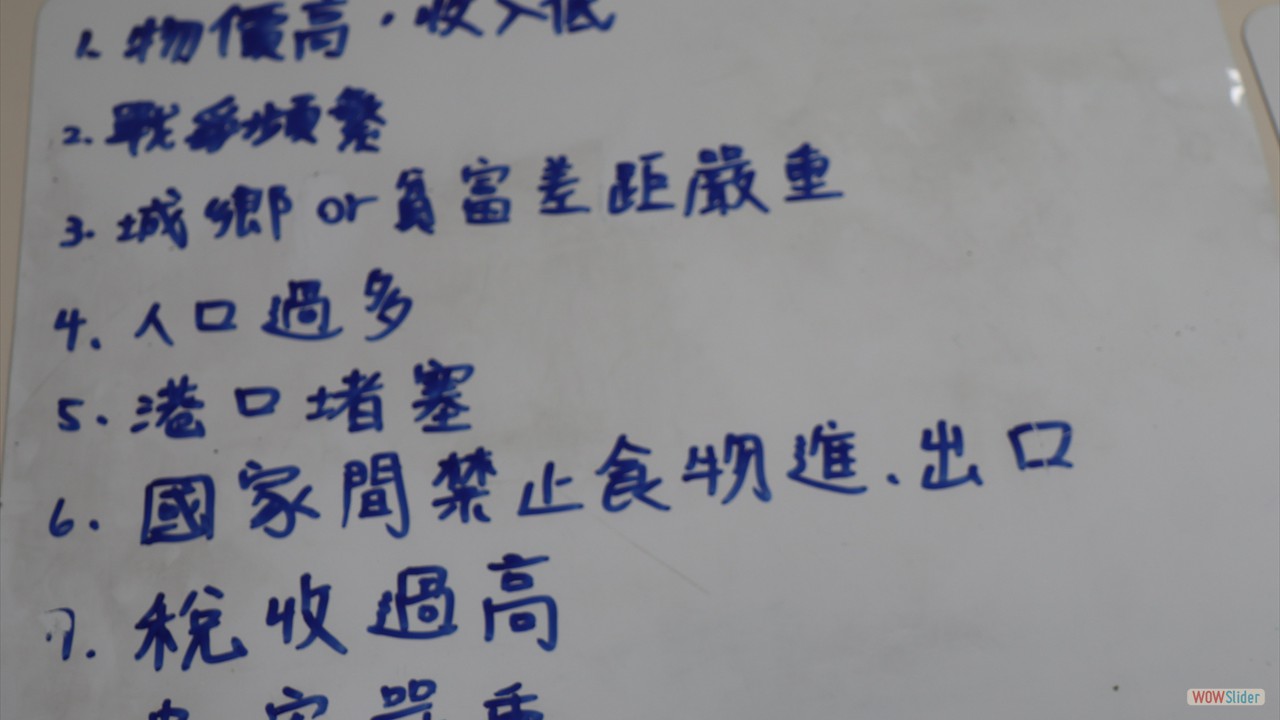 1. 物價高．收入低
2. 戰爭頻繁
3. 城鄉 or 貧富差距嚴重
4. 人口過多
5. 港口堵塞
6. 國家間禁止食物進、出口
7. 稅收過高
嚴重
WOWSlider